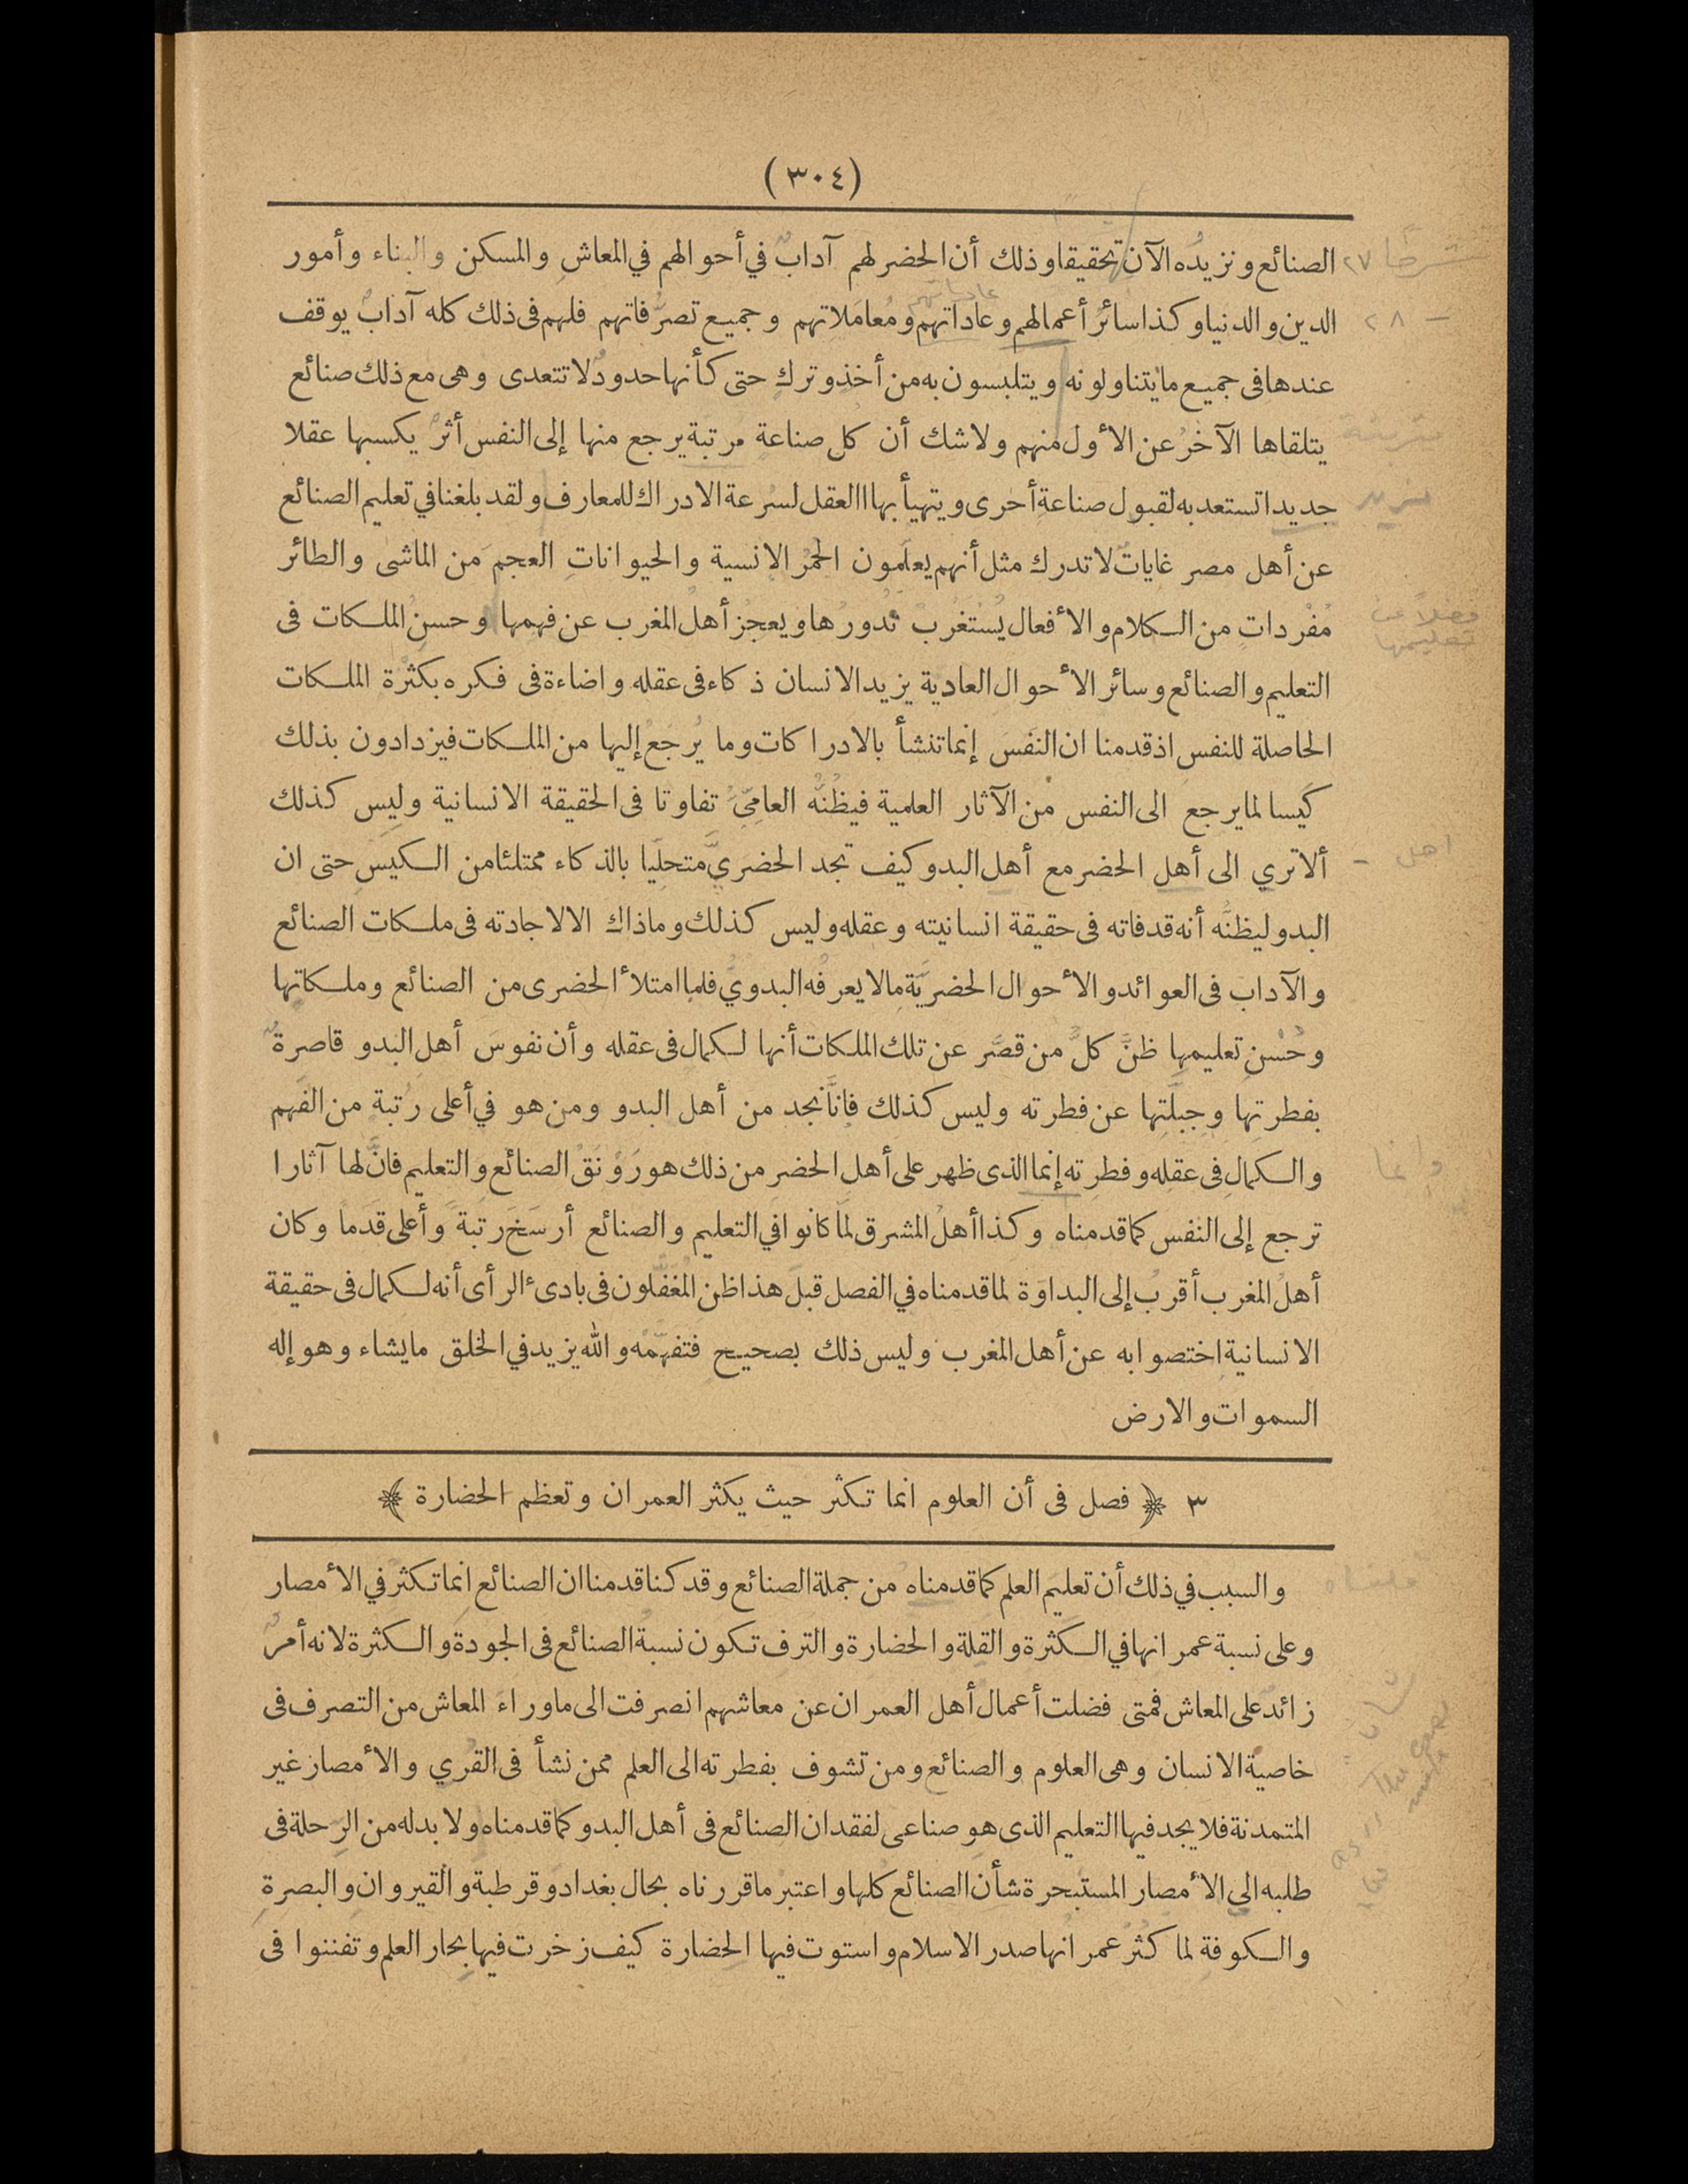 (٣٠٤)
الصنائع ونزيدُه الآن تحقيقا وذلك أن الحضر لهم آدابٌ في أحوالهم في المعاش والمسكن والبناء وأمور
الدين والدنيا وكذا سائرُ أعمالهم وعاداتهم ومُعامَلاتهم وجميع تصرُّفاتهم فلهم فى ذلك كله آدابٌ يوقف
عندها فى جميع ما يتناولونه ويتلبسون به من أخذٍ وتركٍ حتى كأنها حدودٌ لا تتعدى وهى مع ذلك صنائع
يتلقاها الآخرُ عن الأول منهم ولا شك أن كل صناعة مرتبة يرجع منها إلى النفس أثرٌ يكسبها عقلا
جديدا تستعد به لقبول صناعةٍ أخرى ويتهيأ بها العقل لسرعة الادراك للمعارف ولقد بلغنا في تعليم الصنائع
عن أهل مصر غاياتٌ لا تدرك مثل أنهم يعلّمون الحُمُر الانسية والحيواناتِ العجمَ من الماشى والطائر
مُفْرداتٍ من الكلام والأفعال يُسْتَغْرَبُ نُدورُها ويعجِز أهلُ المغرب عن فهمها وحسنُ الملكات فى
التعليم والصنائع وسائر الأحوال العادية يزيد الانسان ذكاء فى عقله واضاءة فى فكره بكَثْرة الملكات
الحاصلة للنفس اذ قدمنا ان النفسَ إنما تنشأ بالادراكات وما يُرجَعُ إليها من الملكات فيزدادون بذلك
كَيسا لما يرجع الى النفس من الآثار العلمية فيظُنُّه العامِّىُّ تفاوتا فى الحقيقة الانسانية وليس كذلك
ألا تري الى أهل الحضر مع أهل البدو كيف تجد الحضريَّ متحلّيا بالذكاء ممتلئا من الكيس حتى ان
البدو ليظنُّه أنه قد فاته فى حقيقة انسانيته وعقله وليس كذلك وما ذاك الا لاجادته فى ملكات الصنائع
والآداب فى العوائد والأحوال الحضريَّة ما لا يعرفُه البدويُّ فلما امتلأ الحضرى من الصنائع وملكاتها
وحُسْنِ تعليمها ظنَّ كلُّ من قصَّر عن تلك الملكات أنها لكمال فى عقله وأن نفوسَ أهل البدو قاصرةٌ
بفطرتها وجبلَّتها عن فطرته وليس كذلك فانّا نجد من أهل البدو ومن هو في أعلى رُتبة من الفَهم
والكمالِ فى عقله وفطرته إنما الذى ظهر على أهل الحضر من ذلك هو رَوْنَقُ الصنائع والتعليم فانَّ لها آثارا
ترجع إلى النفس كما قدمناه وكذا أهلُ المشرق لمّا كانوا في التعليم والصنائع أرسَخَ رتبةً وأعلى قَدَما وكان
أهلُ المغرب أقربُ إلى البداوَة لما قدمناه في الفصل قبلَ هذا ظن المُغَفَّلون فى بادىء الرأى أنه لكمال فى حقيقة
الانسانية اختصوا به عن أهل المغرب وليس ذلك بصحيح فتفهّمْه والله يزيد في الخلق ما يشاء وهو إله
السموات والارض
٣ ﴿ فصل فى أن العلوم انما تكثر حيث يكثر العمران وتعظم الحضارة ﴾
والسبب في ذلك أن تعليم العلم كما قدمناه من جملة الصنائع وقد كنا قدمنا ان الصنائع انما تكثرُ في الأمصار
وعلى نسبة عمرانها في الكثرة والقلة والحضارة والترف تكون نسبةُ الصنائع فى الجودة والكثرة لانه أمرٌ
زائد على المعاش فمتى فضلت أعمال أهل العمران عن معاشهم انصرفت الى ما وراءَ المعاش من التصرف فى
خاصية الانسان وهى العلوم والصنائع ومن تشوف بفطرته الى العلم ممن نشأ فى القُري والأمصار غير
المتمدنة فلا يجد فيها التعليم الذى هو صناعى لفقدان الصنائع فى أهل البدو كما قدمناه ولا بد له من الرِحلة فى
طلبه الي الأمصار المستبحرة شأن الصنائع كلها واعتبر ما قررناه بحال بغداد وقرطبة والقيروان والبصرة
والكوفة لما كثُرَ عمرانُها صدر الاسلام واستوت فيها الحضارة كيف زخرت فيها بحار العلم وتفننوا فى
٢٧
٢٨ -
فضلا عن
تعليمها
اهل -
وانما